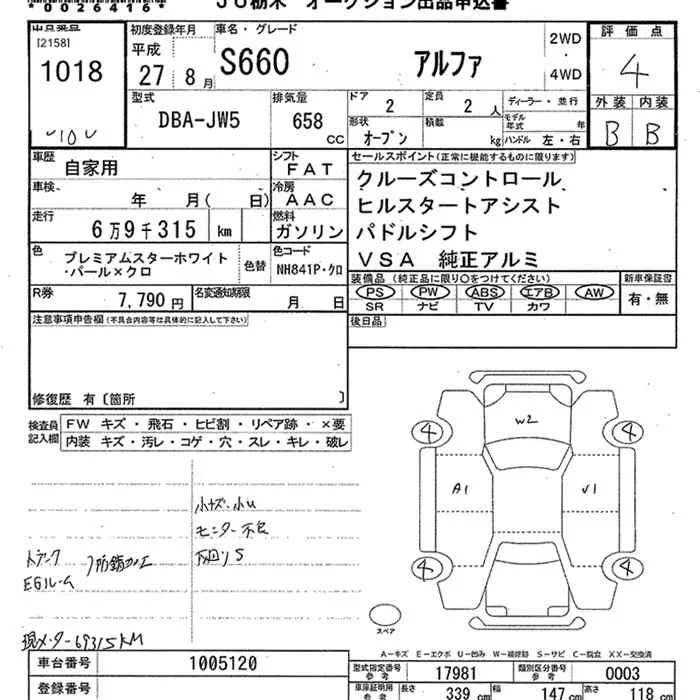 *0026416*
JU栃木 オークション出品申込書
出品番号
[2158]
1018
初度登録年月
平成
27年 8月
車名・グレード
S660 アルファ
2WD
・
4WD
評価点
4
外装 内装
B B
型式
DBA-JW5
排気量
658
cc
ドア
2
定員
2人
ディーラー・並行
モデル年式 年
形状
オープン
積載
kg
ハンドル 左・右
車歴
自家用
シフト
FAT
車検
年 月( 日)
冷房
AAC
走行
6万9千315 km
燃料
ガソリン
色
プレミアムスターホワイト
・パール×クロ
色替
色コード
NH841P・クロ
R券
7,790円
名変通知期限
月 日
セールスポイント(正常に機能するものに限ります)
クルーズコントロール
ヒルスタートアシスト
パドルシフト
VSA 純正アルミ
装備品 (純正品に限り○をつけてください)
PS PW ABS エアB AW
SR ナビ TV カワ
新車保証書
有・無
後日品
注意事項申告欄(不具合内容等は具体的に記入して下さい)
修復歴 有〔箇所 〕
検査員
記入欄
FW キズ・飛石・ヒビ割・リペア跡・×要
内装 キズ・汚レ・コゲ・穴・スレ・キレ・破レ
小キズ・小U
モニター不良
下廻りS
トランク
EGルーム
防錆加工
現メーター69315KM
W2
4 4
A1 V1
4 4
スペア
A-キズ E-エクボ U-凹み W-補修跡 S-サビ C-腐食 XX-交換済
車台番号
1005120
登録番号
型式指定番号
参考
17981
類別区分番号
参考
0003
車庫証明用
参考
長さ 339 cm
幅 147 cm
高さ 118 cm